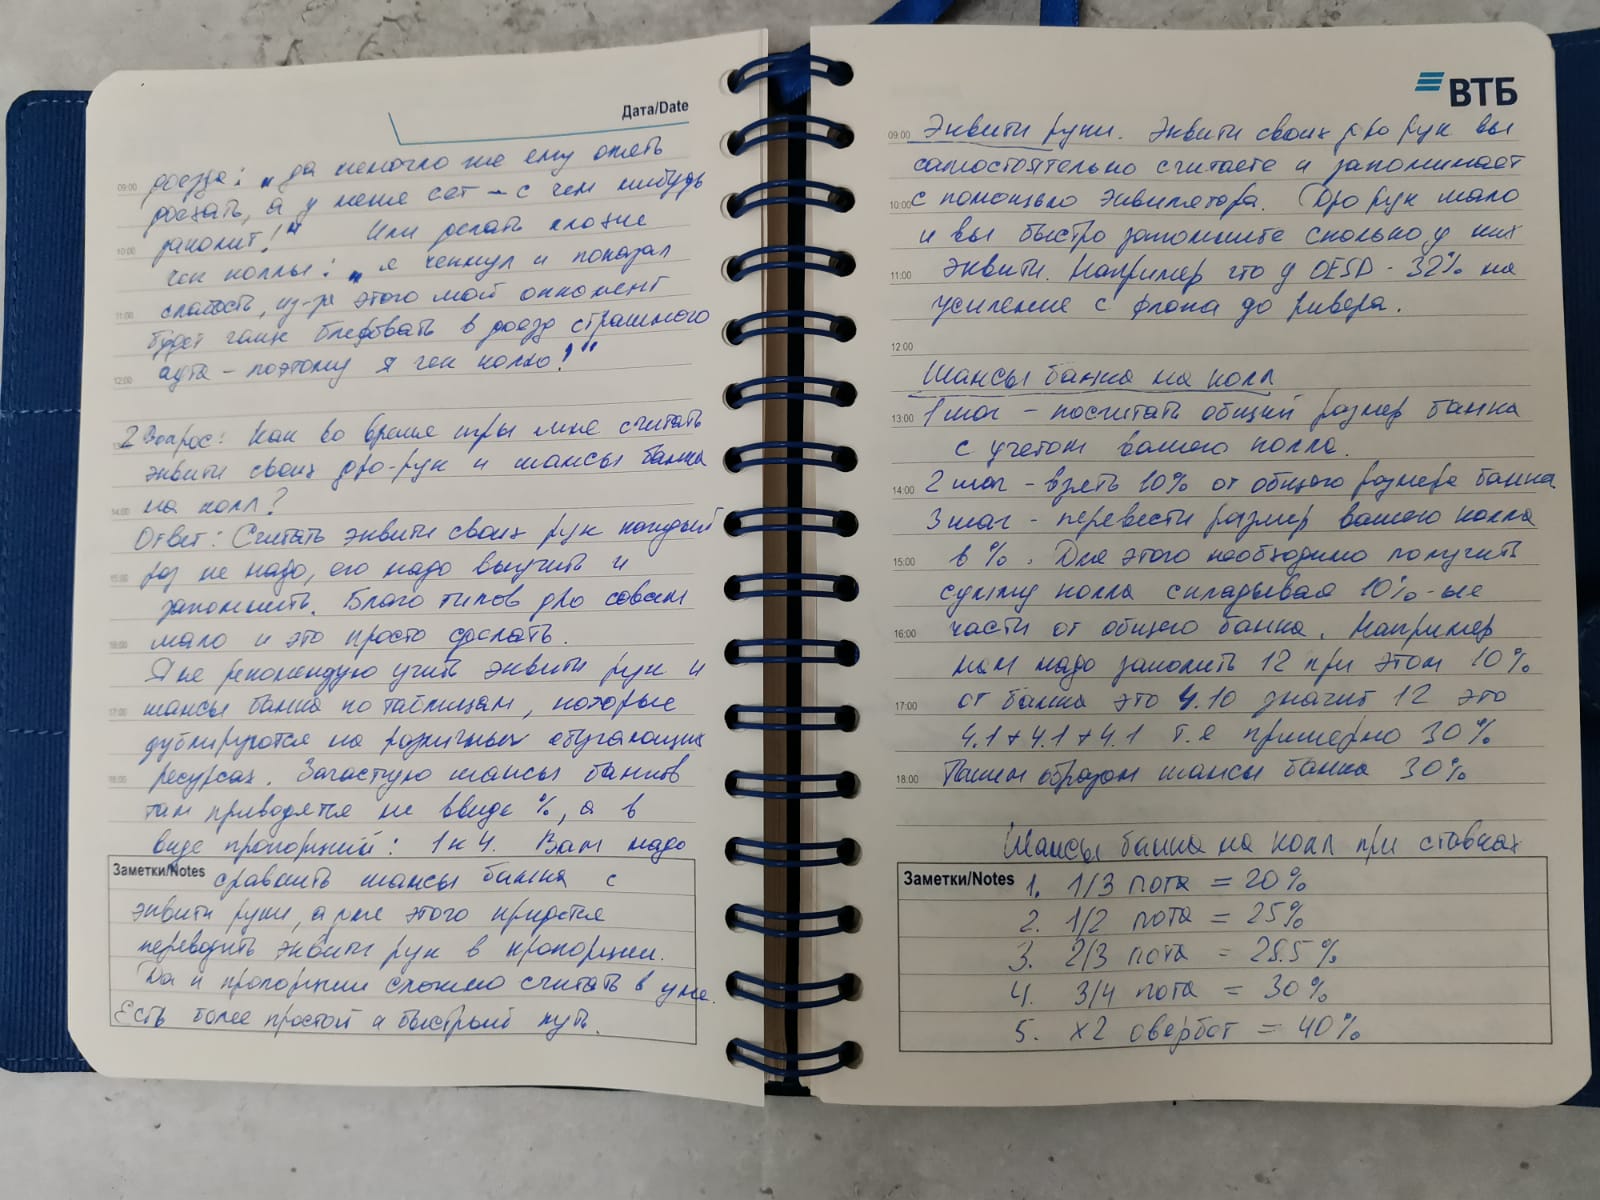 Дата/Date
доезда: „да немогло же ему опять
09:00
доехать, а у меня сет – с чем нибудь
заколит!" Или делать плохие
10:00
чек коллы: „я чекнул и показал
слабость, из-за этого мой оппонент
11:00
будет чаще блефовать в доезд страшного
аута – поэтому я чек колю!"
12:00
2 Вопрос: Как во время игры мне считать
эквити своих дро-рук и шансы банка
на колл?
14:00
Ответ: Считать эквити своих рук каждый
раз не надо, его надо выучить и
15:00
запомнить. Благо типов дро совсем
мало и это просто сделать.
16:00
Я не рекомендую учить эквити рук и
шансы банка по таблицам, которые
17:00
дублируются на различных обучающих
ресурсах. Зачастую шансы банков
18:00
там приводятся не ввиде %, а в
виде пропорций: 1 к 4. Вам надо
Заметки/Notes
сравнить шансы банка с
эквити руки, а для этого придется
переводить эквити рук в пропорции.
Да и пропорции сложно считать в уме.
Есть более простой и быстрый путь.
ВТБ
09:00
Эквити руки. Эквити своих дро рук вы
самостоятельно считаете и запоминает
10:00
с помощью эквилятора. Дро рук мало
и вы быстро запомните сколько у них
11:00
эквити. Например что у OESD - 32% на
усиление с флопа до ривера.
12:00
Шансы банка на колл
13:00
1 шаг – посчитать общий размер банка
с учетом вашего колла.
14:00
2 шаг – взять 10% от общего размера банка
3 шаг - перевести размер вашего колла
15:00
в %. Для этого необходимо получить
сумму колла складывая 10%-ые
16:00
части от общего банка. Например
нам надо заколить 12 при этом 10%
17:00
от банка это 4.10 значит 12 это
4.1 + 4.1 + 4.1 т.е примерно 30%
18:00
Таким образом шансы банка 30%
Шансы банка на колл при ставках
Заметки/Notes
1. 1/3 пота = 20%
2. 1/2 пота = 25%
3. 2/3 пота = 28.5%
4. 3/4 пота = 30%
5. x2 овербет = 40%